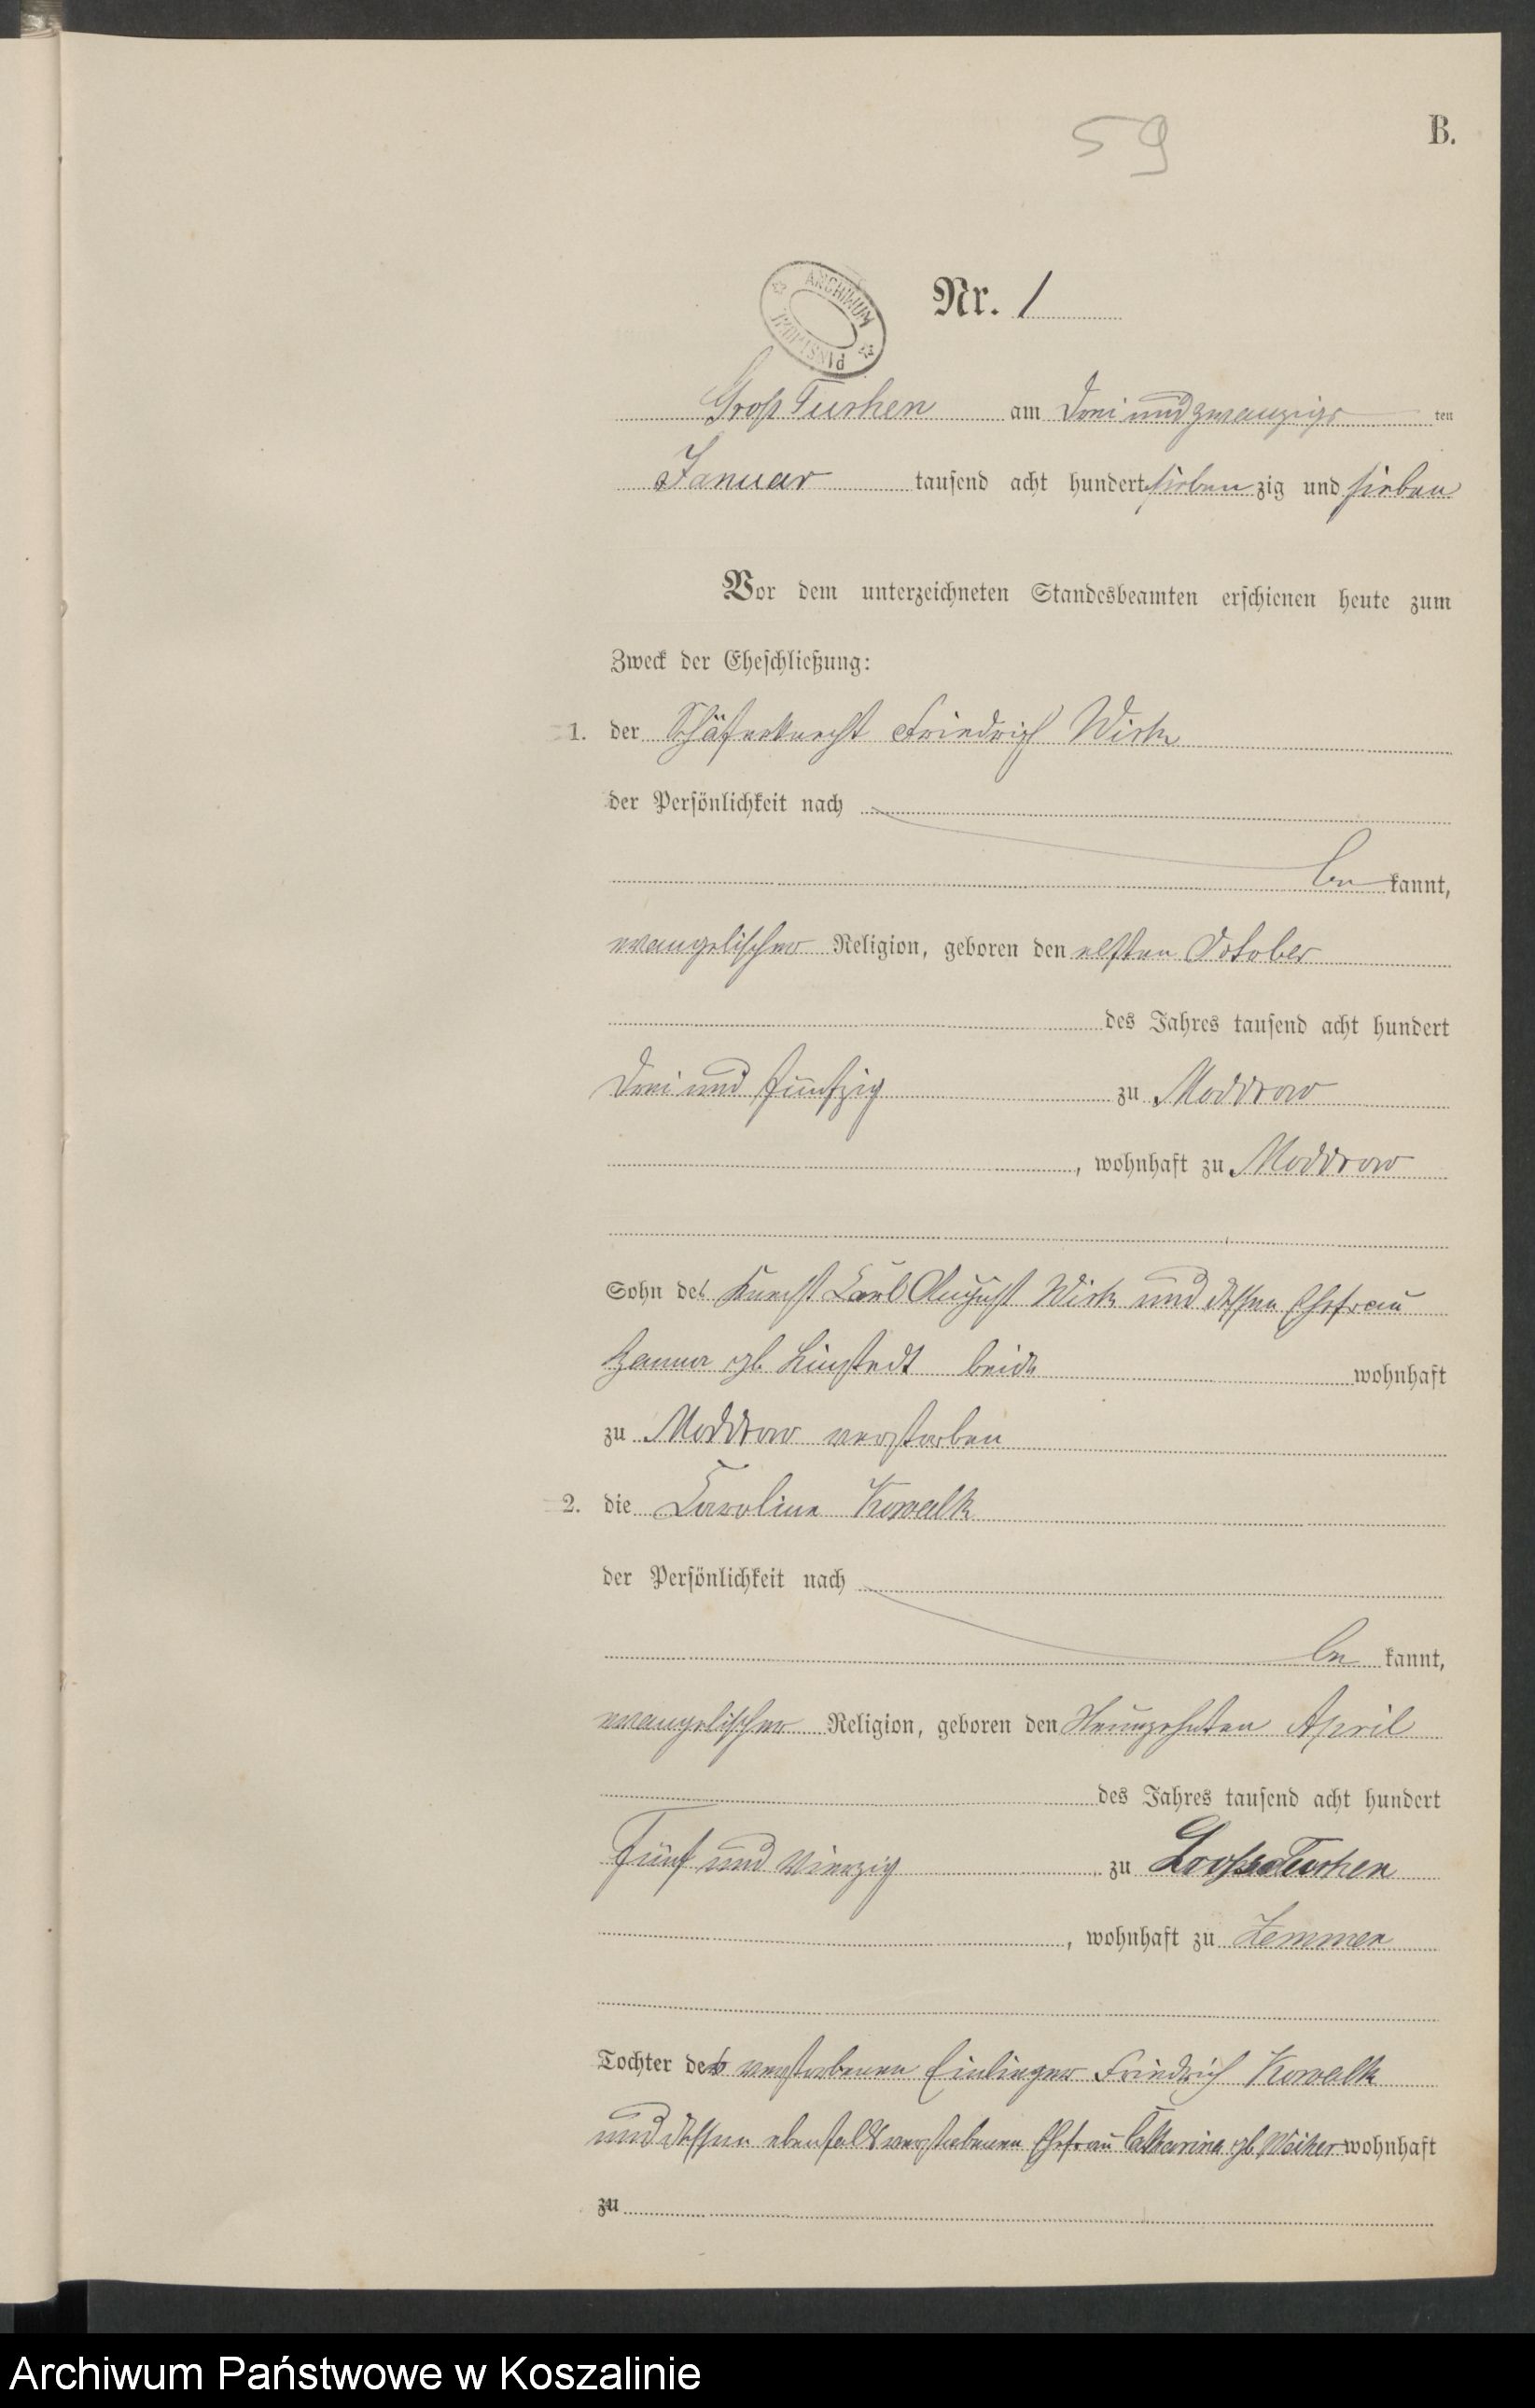 59
B.
ARCHIWUM PAŃSTWOWE
Nr. 1
Groß Tuchen am Drei und zwanzigs ten
Januar tausend acht hundert sieben zig und sieben
Vor dem unterzeichneten Standesbeamten erschienen heute zum
Zweck der Eheschließung:
1. der Schäferknecht Friedrich
der Persönlichkeit nach
be kannt,
evangelischer Religion, geboren den elften October
des Jahres tausend acht hundert
drei und fünfzig zu Moddrow
, wohnhaft zu Moddrow
Sohn des Knecht Carl August und dessen Ehefrau
geb. beide wohnhaft
zu Moddrow verstorben
2. die Caroline Kowalk
der Persönlichkeit nach
be kannt,
evangelischer Religion, geboren den Neunzehnten April
des Jahres tausend acht hundert
Fünf und vierzig zu Groß Tuchen
, wohnhaft zu Zemmen
Tochter des verstorbenen Einlieger Friedrich Kowalk
und dessen ebenfalls verstorbenen Ehefrau Catharina geb. wohnhaft
zu
Archiwum Państwowe w Koszalinie